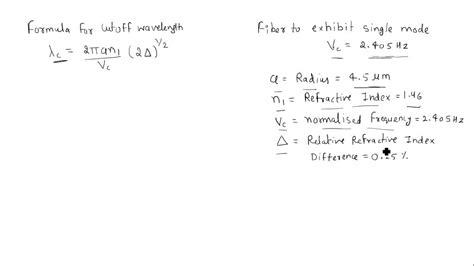 Formula for cutoff wavelength
λc = 2πan₁/Vc (2Δ)^1/2
Fiber to exhibit single mode
Vc = 2.405 Hz
a = Radius = 4.5 μm
n₁ = Refractive Index = 1.46
Vc = normalised Frequency = 2.405 Hz
Δ = Relative Refractive Index
Difference = 0.25 %